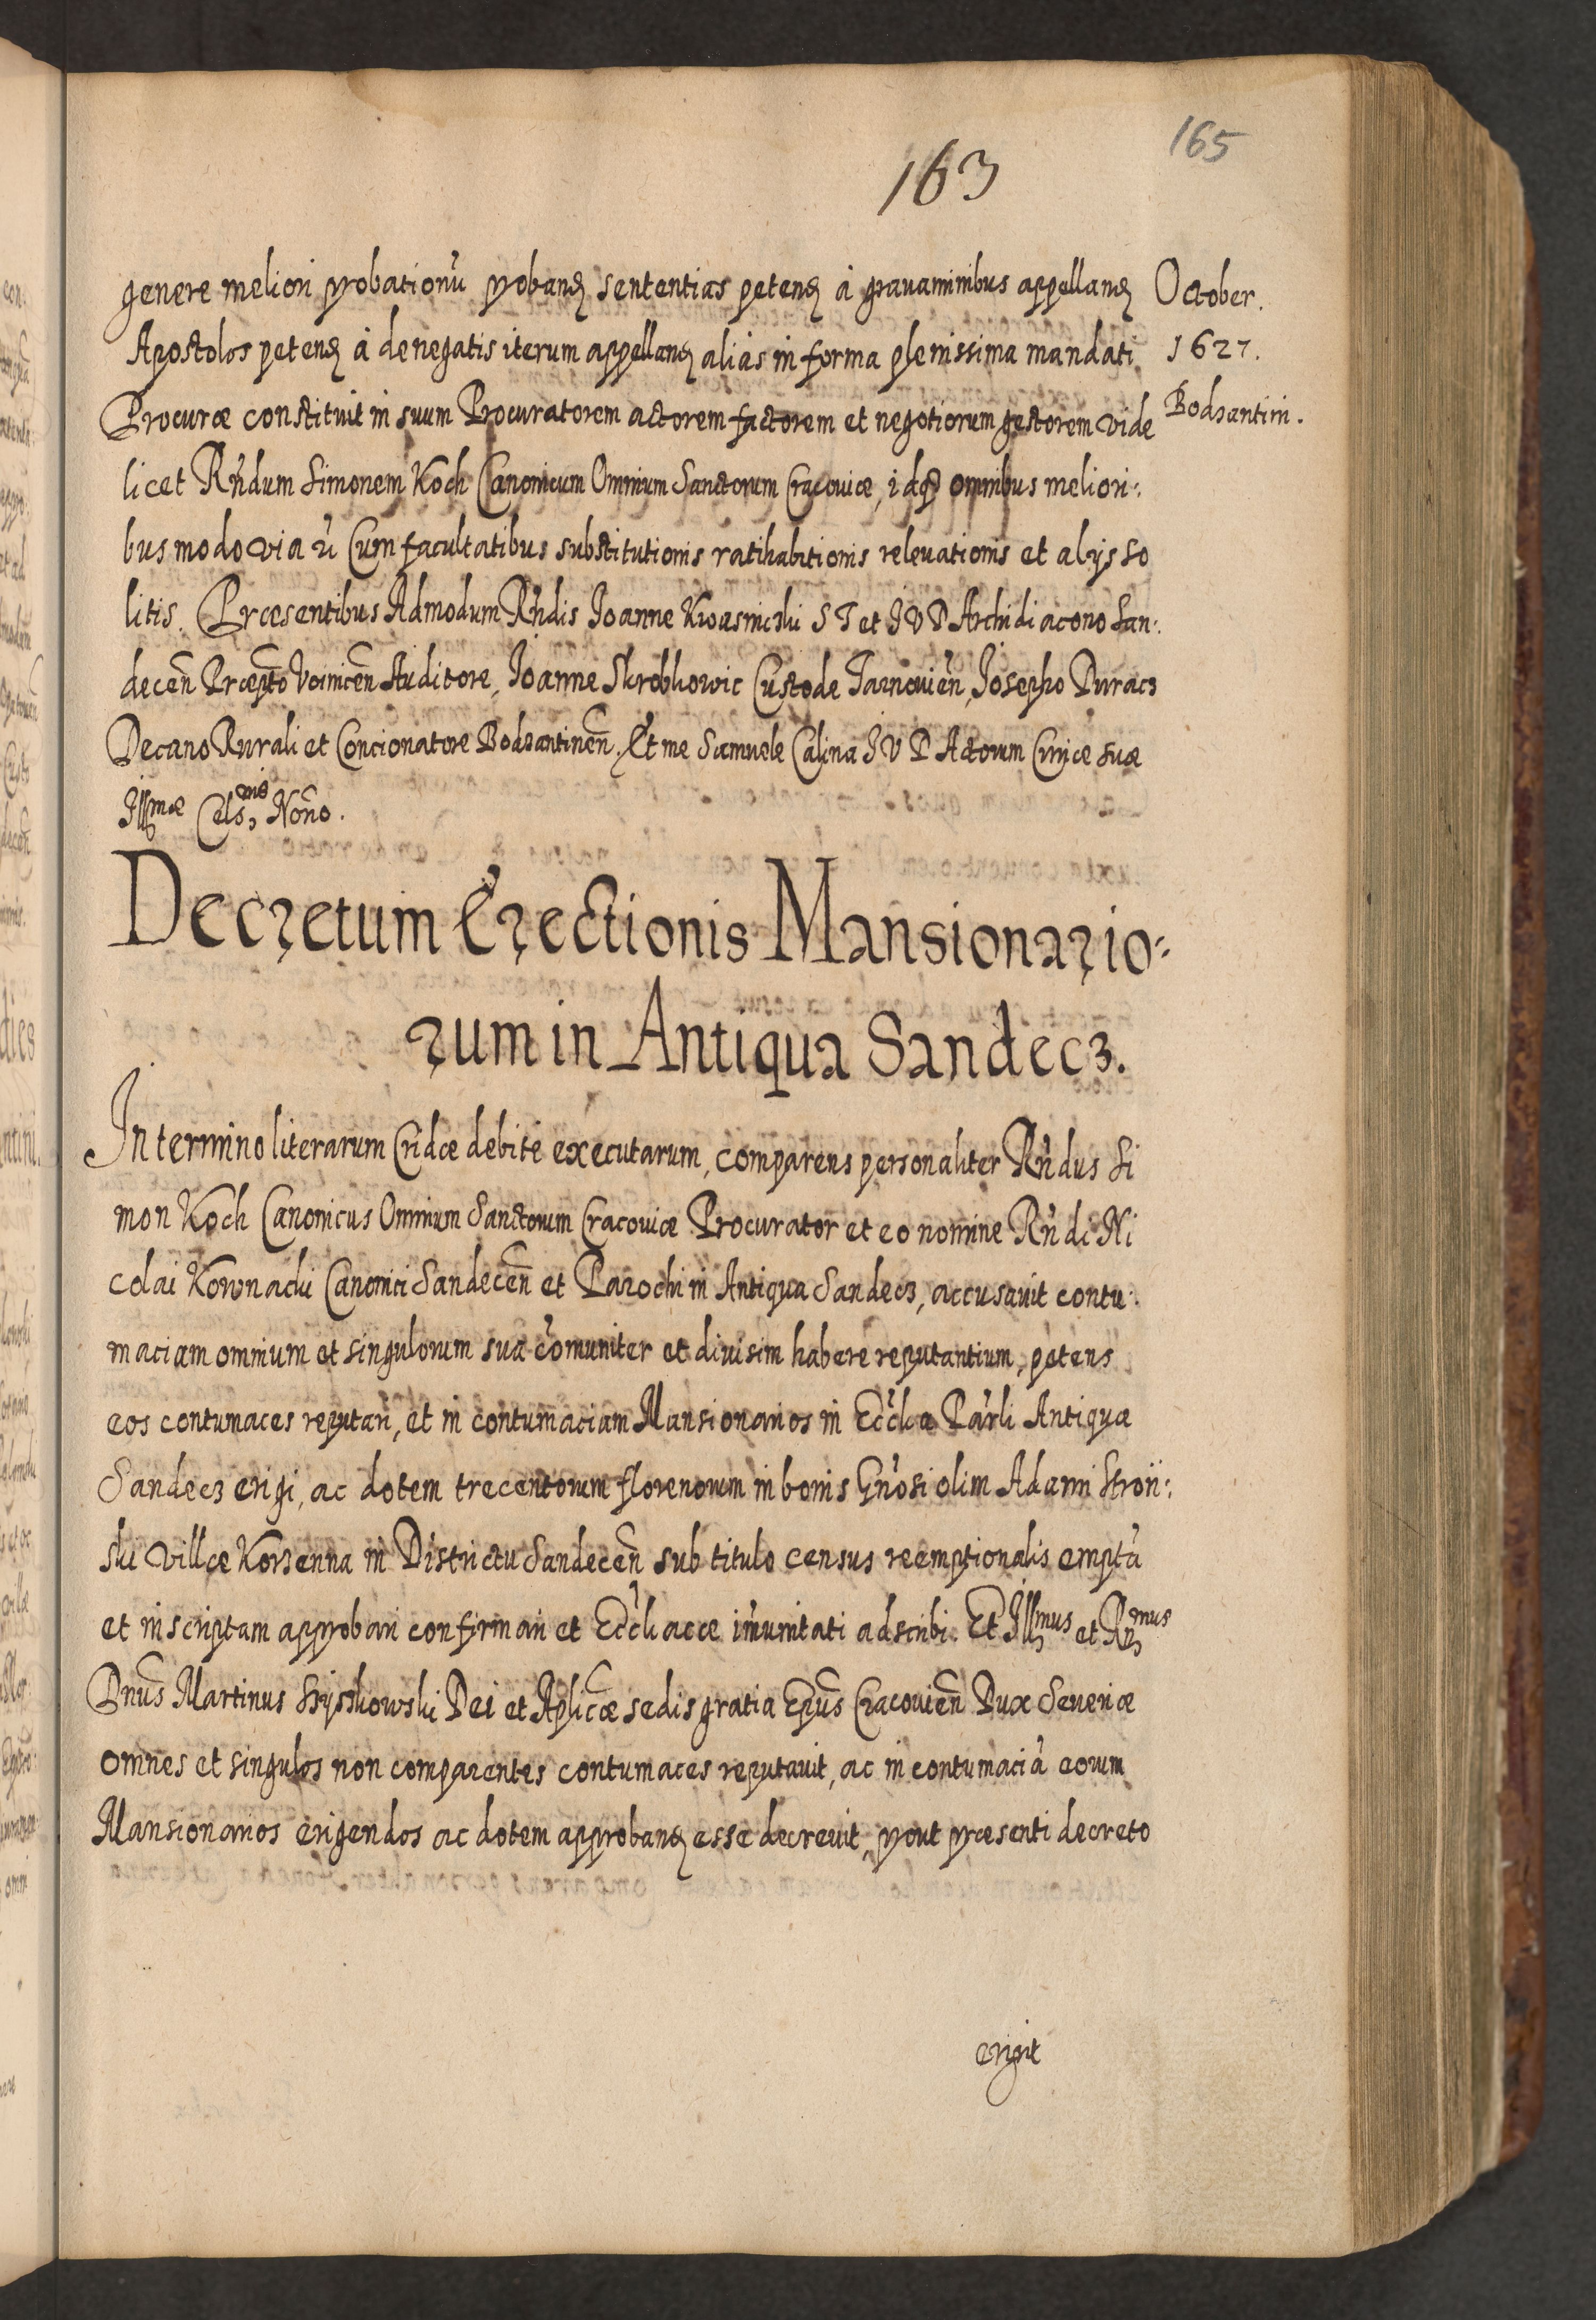 165
163
genere meliori probationù probanꝫ sententias petenꝫ à grauaminibus appellanꝫ
Apostolos petenꝫ à denegatis iterum appellanꝫ aliàs in forma plenissima mandati
Procuræ constituit in suum Procuratorem actorem factorem et negotiorum gestorem vide
licet Rńdum Simonem Koch Canonicum Omnium Sanctorum Cracouiæ, idqꝫ omnibus meliori:
bus modo via ù Cum facultatibus substitutionis ratihabitionis releuationis et alijs so
litis. Præsentibus Admodum Rńdis Joanne Kwasnicki S T et J V D Archidiacono San:
decen̄ Præpto Voinicen̄ Auditore, Joanne Skrobkowic Custode Tarnouien̄, Josepho Duracz
Decano Rurali et Concionatore Bodzantinen̄, Et me Samuele Calina J V D Actorum Curiæ suæ
Jllmæ Celsnis Nōno.
October.
1627.
Bodzantini.
Decretum Erectionis Mansionario:
rum in Antiqua Sandecz.
In termino literarum Cridæ debitè executarum, comparens personaliter Rńdus Si
mon Koch Canonicus Omnium Sanctorum Cracouiæ Procurator et eo nomine Rńdi Ni
colai Kownacki Canonici Sandecen̄ et Parochi in Antiqua Sandecz, accusauit contu:
maciam omnium et singulorum sua cōmuniter et diuisim habere reputantium, petens
eos contumaces reputari, et in contumaciam Mansionarios in Eccĺia Parĺi Antiquæ
Sandecz erigi, ac dotem trecentorum florenorum in bonis Gńosi olim Adami Stroń:
ski Villæ Korzenna in Districtu Sandecen̄ sub titulo census reemptionalis emptà
et inscriptam approbari confirmari et Eccĺiacæ imunitati adscribi. Et Jllmus et Rmus
Dnus Martinus Szyszkowski Dei et Aplicæ sedis gratia Epus Cracouien̄ Dux Seueriæ
omnes et singulos non comparentes contumaces reputauit, ac in contumacià eorum
Mansionarios erigendos ac dotem approbanꝫ esse decreuit, prout præsenti decreto
erigit